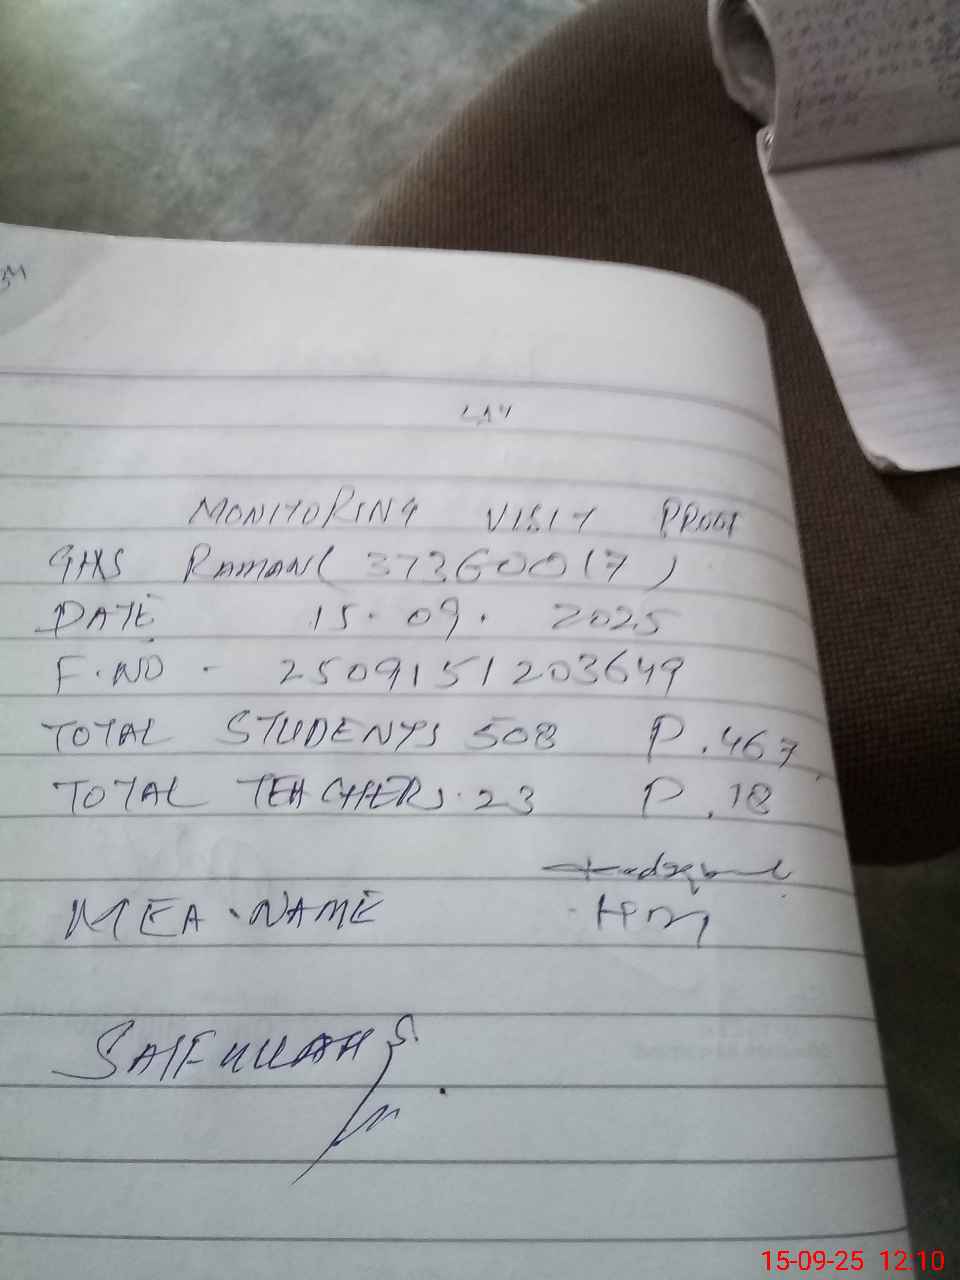 MONITORING VISIT PROOF
GHS RAMAN( 37360017 )
DATE 15.09. 2025
F.NO - 2509151203649
TOTAL STUDENTS 508 P.467
TOTAL TEACHERS.23 P.18
MEA.NAME HM
SAIFULLAH
15-09-25 12:10